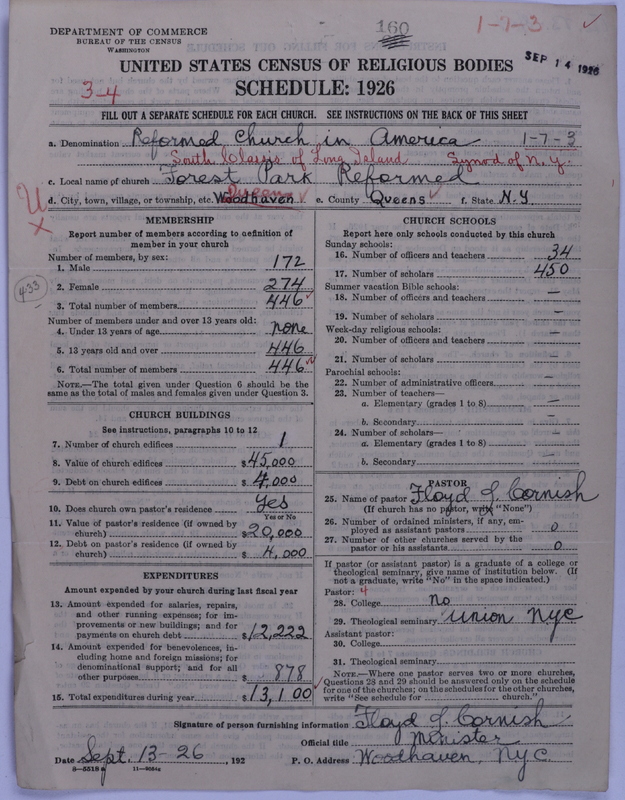 DEPARTMENT OF COMMERCE
BUREAU OF THE CENSUS
WASHINGTON
160
1-7-3
SEP 14 1926
UNITED STATES CENSUS OF RELIGIOUS BODIES
3-4
SCHEDULE: 1926
FILL OUT A SEPARATE SCHEDULE FOR EACH CHURCH. SEE INSTRUCTIONS ON THE BACK OF THIS SHEET
a. Denomination Reformed Church in America 1-7-3
South Classis of Long Island Synod of N.Y.
c. Local name of church Forest Park Reformed
Queens
d. City, town, village, or township, etc. Woodhaven e. County Queens f. State N.Y
MEMBERSHIP
Report number of members according to definition of
member in your church
Number of members, by sex:
1. Male 172
433
2. Female 274
3. Total number of members 446
Number of members under and over 13 years old:
4. Under 13 years of age none
5. 13 years old and over 446
6. Total number of members 446
NOTE.—The total given under Question 6 should be
same as the total of males and females given under Question 3.
CHURCH BUILDINGS
See instructions, paragraphs 10 to 12
7. Number of church edifices 1
8. Value of church edifices $45,000
9. Debt on church edifices $4,000
10. Does church own pastor's residence Yes
Yes or No
11. Value of pastor's residence (if owned by
church) $20,000
12. Debt on pastor's residence (if owned by
church) $4,000
EXPENDITURES
Amount expended by your church during last fiscal year
13. Amount expended for salaries, repairs,
and other running expenses; for im-
provements or new buildings; and for
payments on church debt $12,222
14. Amount expended for benevolences, in-
cluding home and foreign missions; for
denominational support; and for all
other purposes $878
15. Total expenditures during year $13,100
CHURCH SCHOOLS
Report here only schools conducted by this church
Sunday schools:
16. Number of officers and teachers 34
17. Number of scholars 450
Summer vacation Bible schools:
18. Number of officers and teachers —
19. Number of scholars —
Week-day religious schools:
20. Number of officers and teachers —
21. Number of scholars —
Parochial schools:
22. Number of administrative officers —
23. Number of teachers—
a. Elementary (grades 1 to 8) —
b. Secondary —
24. Number of scholars—
a. Elementary (grades 1 to 8) —
b. Secondary —
PASTOR
25. Name of pastor Floyd J. Cornish
(If church has no pastor, write "None")
26. Number of ordained ministers, if any, em-
ployed as assistant pastors 0
27. Number of other churches served by the
pastor or his assistants 0
If pastor (or assistant pastor) is a graduate of a college or
theological seminary, give name of institution below. (If
not a graduate, write "No" in the space indicated.)
Pastor: 4
28. College No
29. Theological seminary Union NYC
Assistant pastor:
30. College
31. Theological seminary
NOTE.—Where one pastor serves two or more churches,
Questions 28 and 29 should be answered only on the schedule
for one of the churches; on the schedules for the other churches,
write "See schedule for church."
Signature of person furnishing information Floyd J. Cornish
Official title Minister
Date Sept. 13-26, 192 P. O. Address Woodhaven, N.Y.C.
8-5518 a 11-9064a